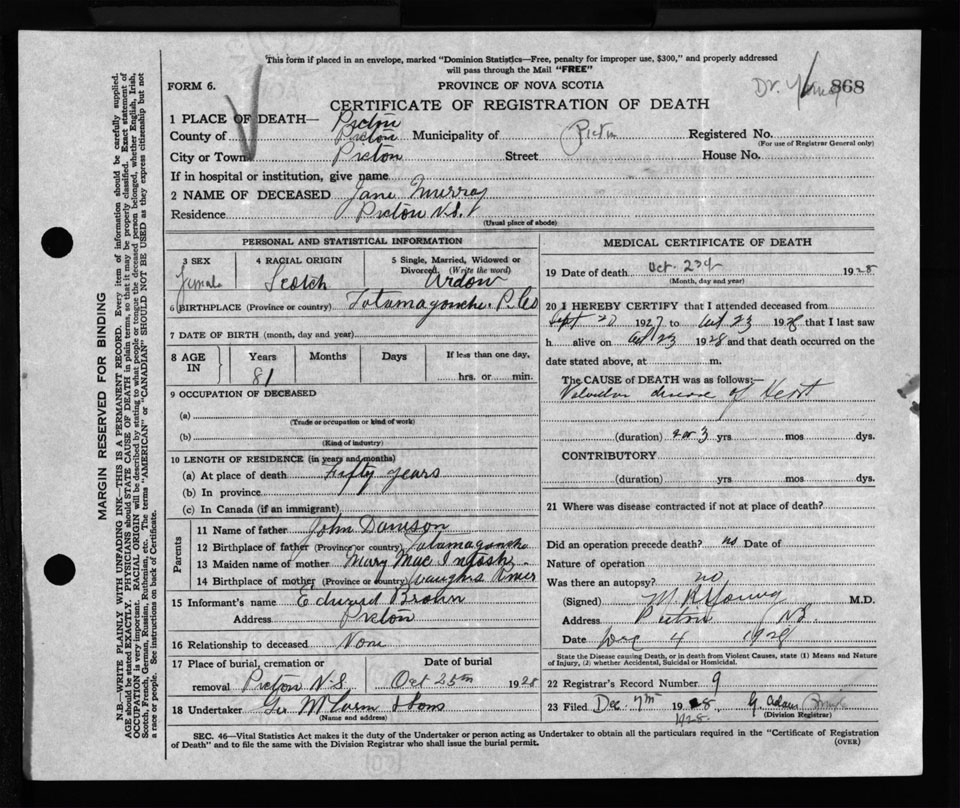 This form if placed in an envelope, marked "Dominion Statistics—Free, penalty for improper use, $300," and properly addressed
will pass through the Mail "FREE"
FORM 6. PROVINCE OF NOVA SCOTIA Dr. Young 868
CERTIFICATE OF REGISTRATION OF DEATH
1 PLACE OF DEATH— Pictou
County of Pictou Municipality of Pictou Registered No.
(For use of Registrar General only)
City or Town Pictou Street House No.
If in hospital or institution, give name
2 NAME OF DECEASED Jane Murray
Residence Pictou N.S.
(Usual place of abode)
PERSONAL AND STATISTICAL INFORMATION
3 SEX 4 RACIAL ORIGIN 5 Single, Married, Widowed or
Divorced. (Write the word)
Female Scotch Widow
6 BIRTHPLACE (Province or country) Tatamagouche, P. Co
7 DATE OF BIRTH (month, day and year)
8 AGE IN Years Months Days If less than one day,
81 hrs. or min.
9 OCCUPATION OF DECEASED
(a)
(Trade or occupation or kind of work)
(b)
(Kind of industry)
10 LENGTH OF RESIDENCE (in years and months)
(a) At place of death Fifty years
(b) In province
(c) In Canada (if an immigrant)
Parents
11 Name of father John Davison
12 Birthplace of father (Province or country) Tatamagouche
13 Maiden name of mother Mary MacIntosh
14 Birthplace of mother (Province or country) River
15 Informant's name Edward Brown
Address Pictou
16 Relationship to deceased None
17 Place of burial, cremation or Date of burial
removal Pictou N.S. Oct 25th 1928
18 Undertaker & Sons
(Name and address)
MEDICAL CERTIFICATE OF DEATH
19 Date of death Oct. 23rd 1928
(Month, day and year)
20 I HEREBY CERTIFY that I attended deceased from
Sept 20 1927 to Oct 23 1928 that I last saw
h alive on Oct 23 1928 and that death occurred on the
date stated above, at m.
The CAUSE of DEATH was as follows:—
Valvular disease of Heart
(duration) 2 or 3 yrs mos dys.
CONTRIBUTORY
(duration) yrs mos dys.
21 Where was disease contracted if not at place of death?
Did an operation precede death? no Date of
Nature of operation
Was there an autopsy? no
(Signed) M R Young M.D.
Address Pictou NS
Date Dec 4 1928
State the Disease causing Death, or in death from Violent Causes, state (1) Means and Nature
of Injury, (2) whether Accidental, Suicidal or Homicidal.
22 Registrar's Record Number 9
23 Filed Dec. 7th 1928 G. Adam
1928 (Division Registrar)
SEC. 46—Vital Statistics Act makes it the duty of the Undertaker or person acting as Undertaker to obtain all the particulars required in the "Certificate of Registration
of Death" and to file the same with the Division Registrar who shall issue the burial permit. (OVER)
MARGIN RESERVED FOR BINDING
N.B.—WRITE PLAINLY WITH UNFADING INK—THIS IS A PERMANENT RECORD. Every item of information should be carefully supplied.
AGE should be stated EXACTLY. PHYSICIANS should STATE CAUSE OF DEATH in plain terms, so that it may be properly classified. Exact statement of
OCCUPATION is very important. RACIAL ORIGIN will be described by stating to what people or tongue the deceased person belonged, whether English, Irish,
Scotch, French, German, Russian, Ruthenian, etc. The terms "AMERICAN" or "CANADIAN" SHOULD NOT BE USED as they express citizenship but not
a race or people. See instructions on back of Certificate.